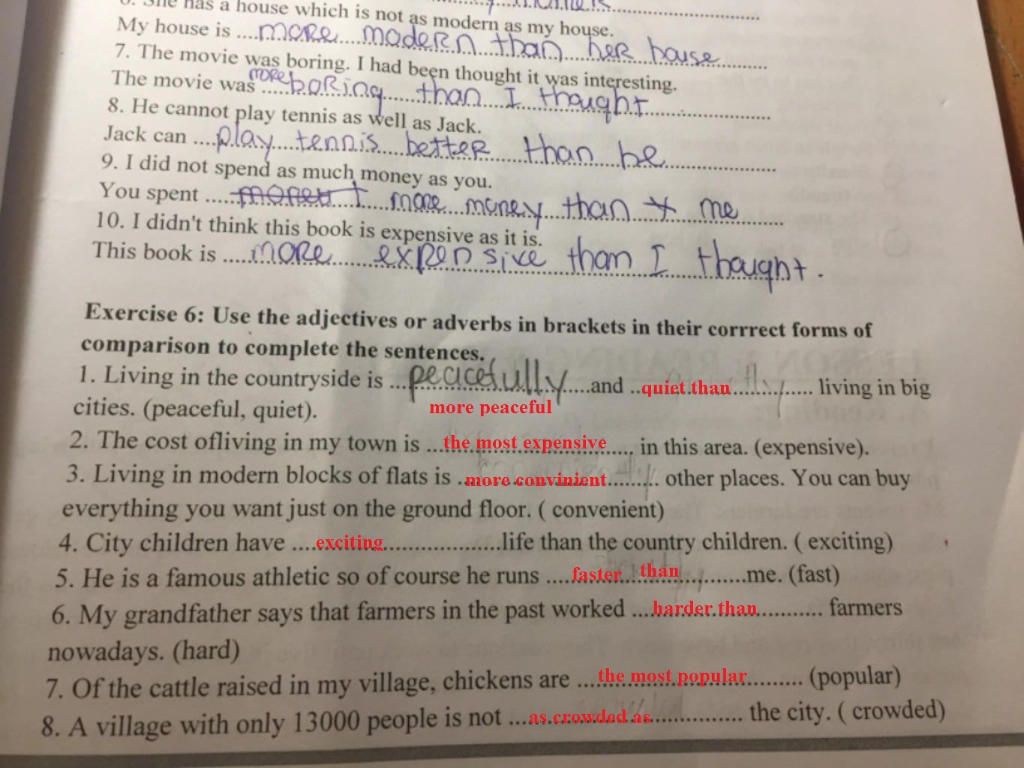 6. She has a house which is not as modern as my house.
My house is ....more modern than her house..........
7. The movie was boring. I had been thought it was interesting.
The movie was ....more boring than I thought..........
8. He cannot play tennis as well as Jack.
Jack can ....play tennis better than he..........
9. I did not spend as much money as you.
You spent ..... more money than me ..........
10. I didn't think this book is expensive as it is.
This book is ....more expensive than I thought.
Exercise 6: Use the adjectives or adverbs in brackets in their corrrect forms of
comparison to complete the sentences.
1. Living in the countryside is ...peacefully....and ..quiet than............ living in big
cities. (peaceful, quiet). more peaceful
2. The cost ofliving in my town is ...the most expensive..... in this area. (expensive).
3. Living in modern blocks of flats is ..more convinient......... other places. You can buy
everything you want just on the ground floor. ( convenient)
4. City children have ....exciting...................life than the country children. ( exciting)
5. He is a famous athletic so of course he runs ....faster than..........me. (fast)
6. My grandfather says that farmers in the past worked ....harder than.......... farmers
nowadays. (hard)
7. Of the cattle raised in my village, chickens are ....the most popular......... (popular)
8. A village with only 13000 people is not ....as crowded as............... the city. ( crowded)